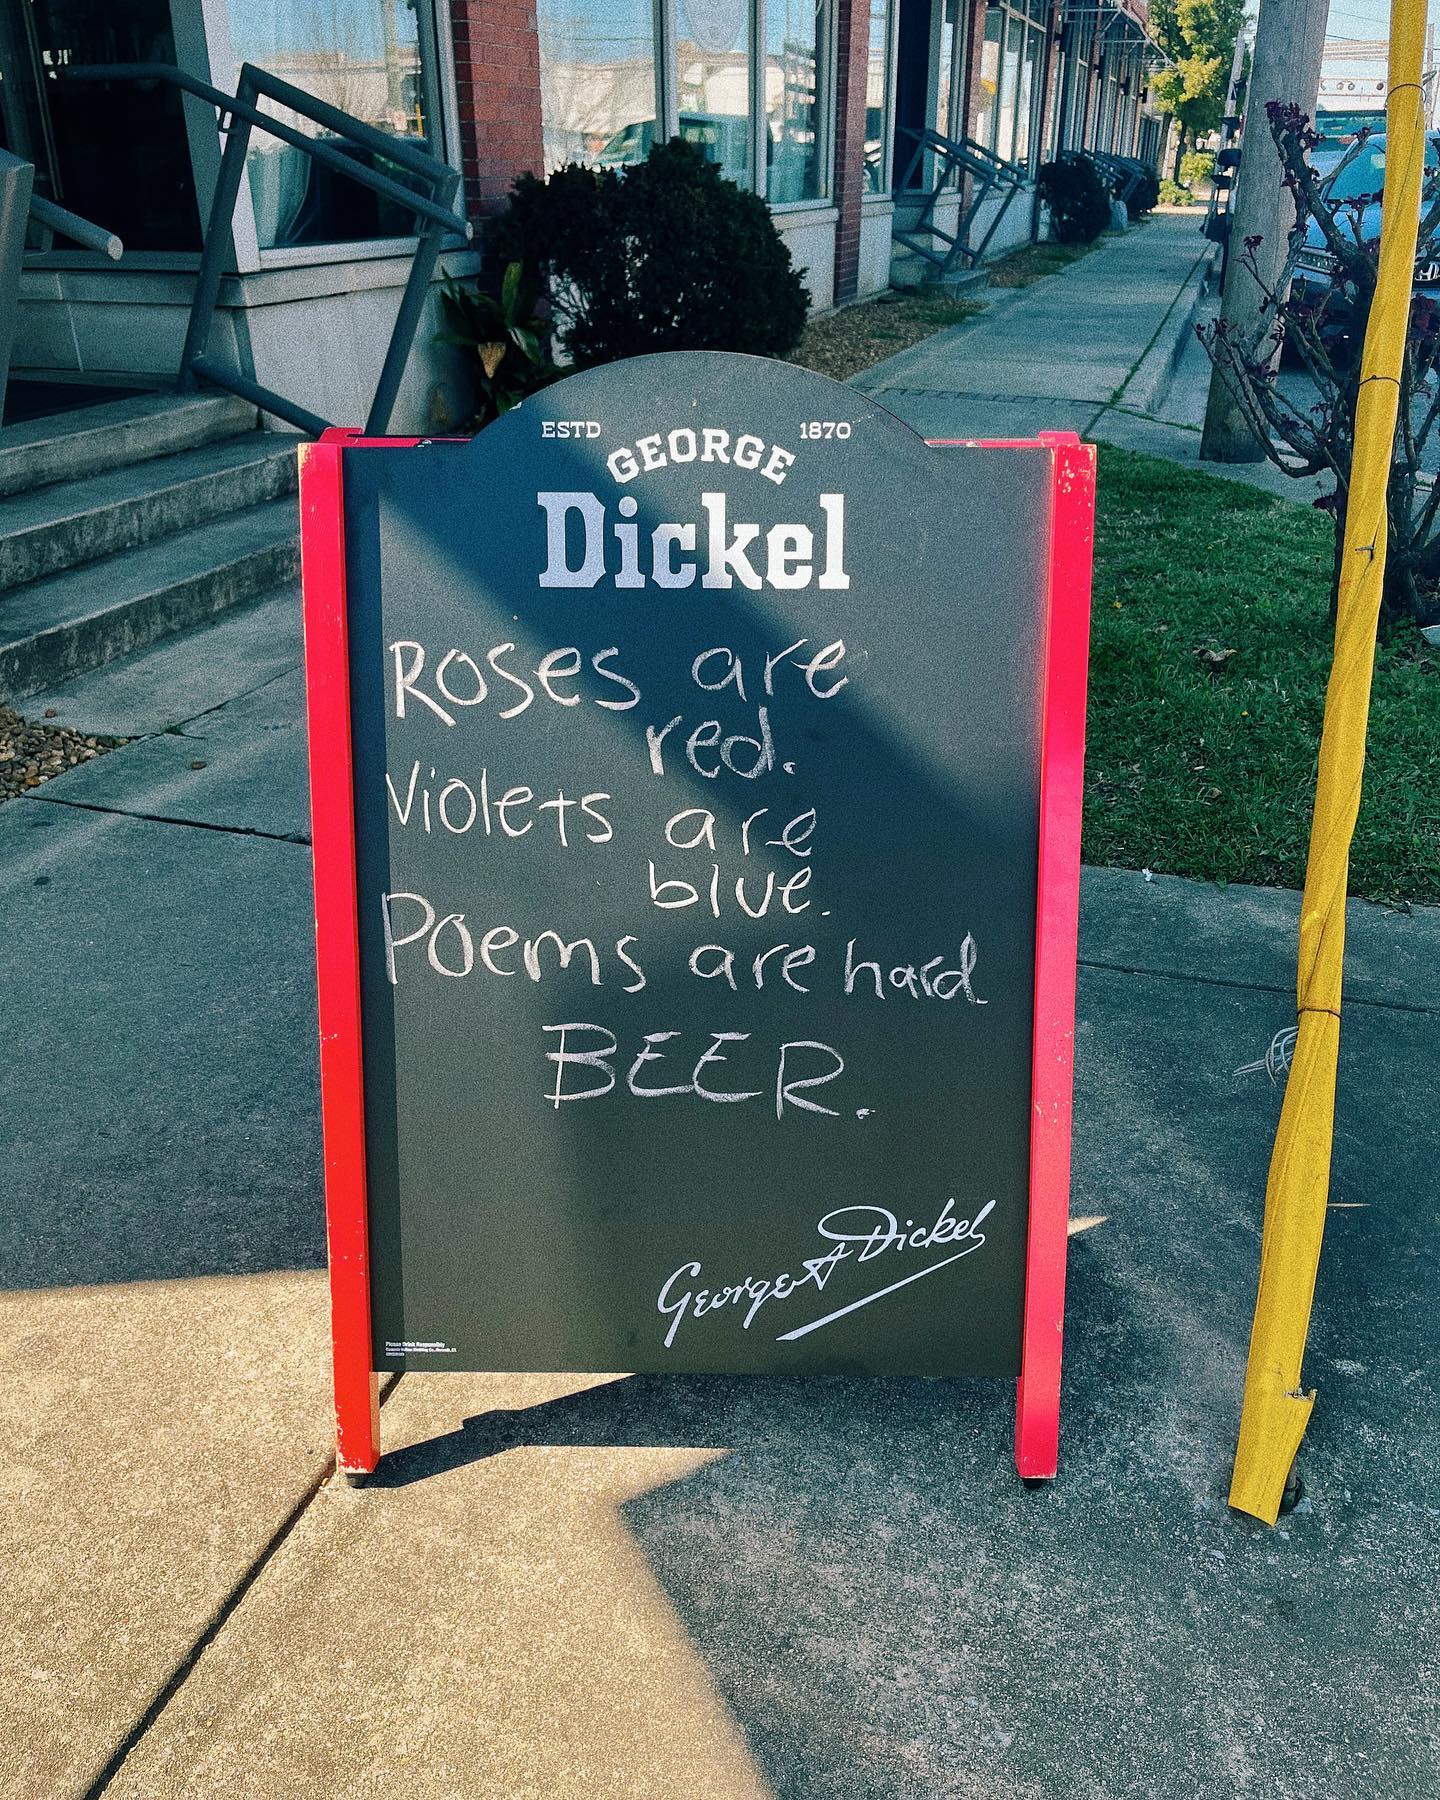 ESTD 1870
GEORGE
Dickel
Roses are
red.
Violets are
blue.
Poems are hard
BEER.
George A Dickel
Please Drink Responsibly